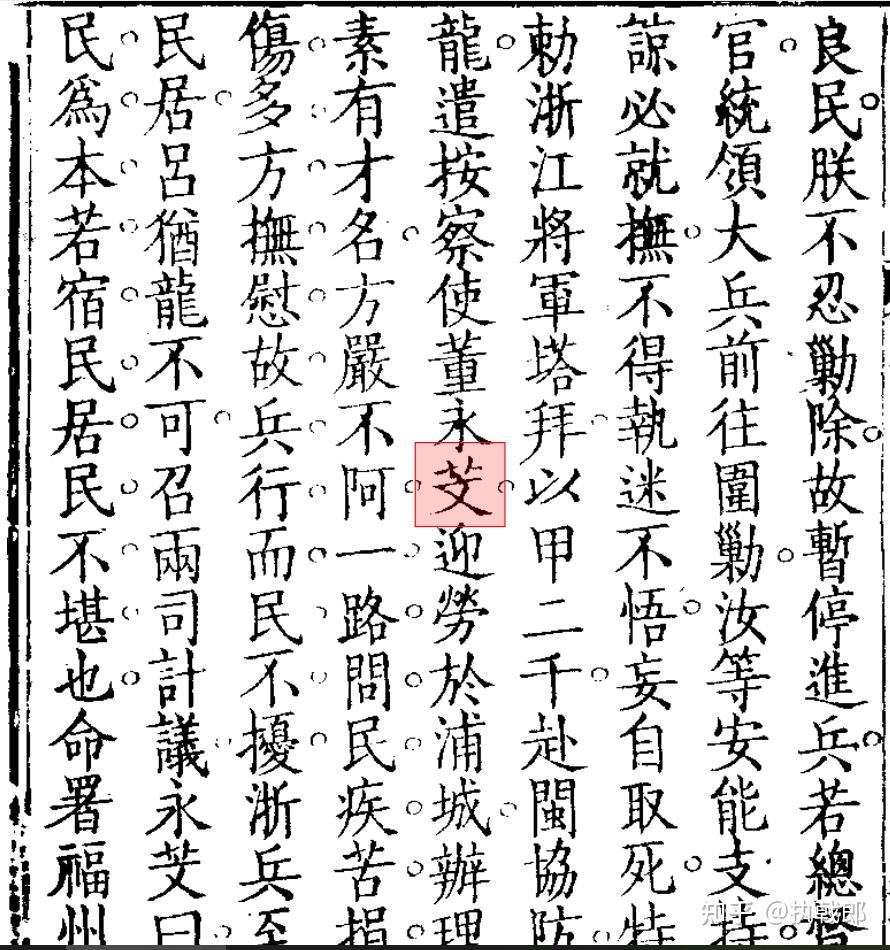 良民朕不忍勦除故暫停進兵若總
官統領大兵前往圍勦汝等安能支持
諒必就撫不得執迷不悟妄自取死特
勅浙江將軍塔拜以甲二千赴閩協防
龍遣按察使董永艾迎勞於浦城辦理
素有才名方嚴不阿一路問民疾苦損
傷多方撫慰故兵行而民不擾浙兵至
民居呂猶龍不可召兩司計議永艾曰
民爲本若宿民居民不堪也命署福州
知乎 @执戟郎